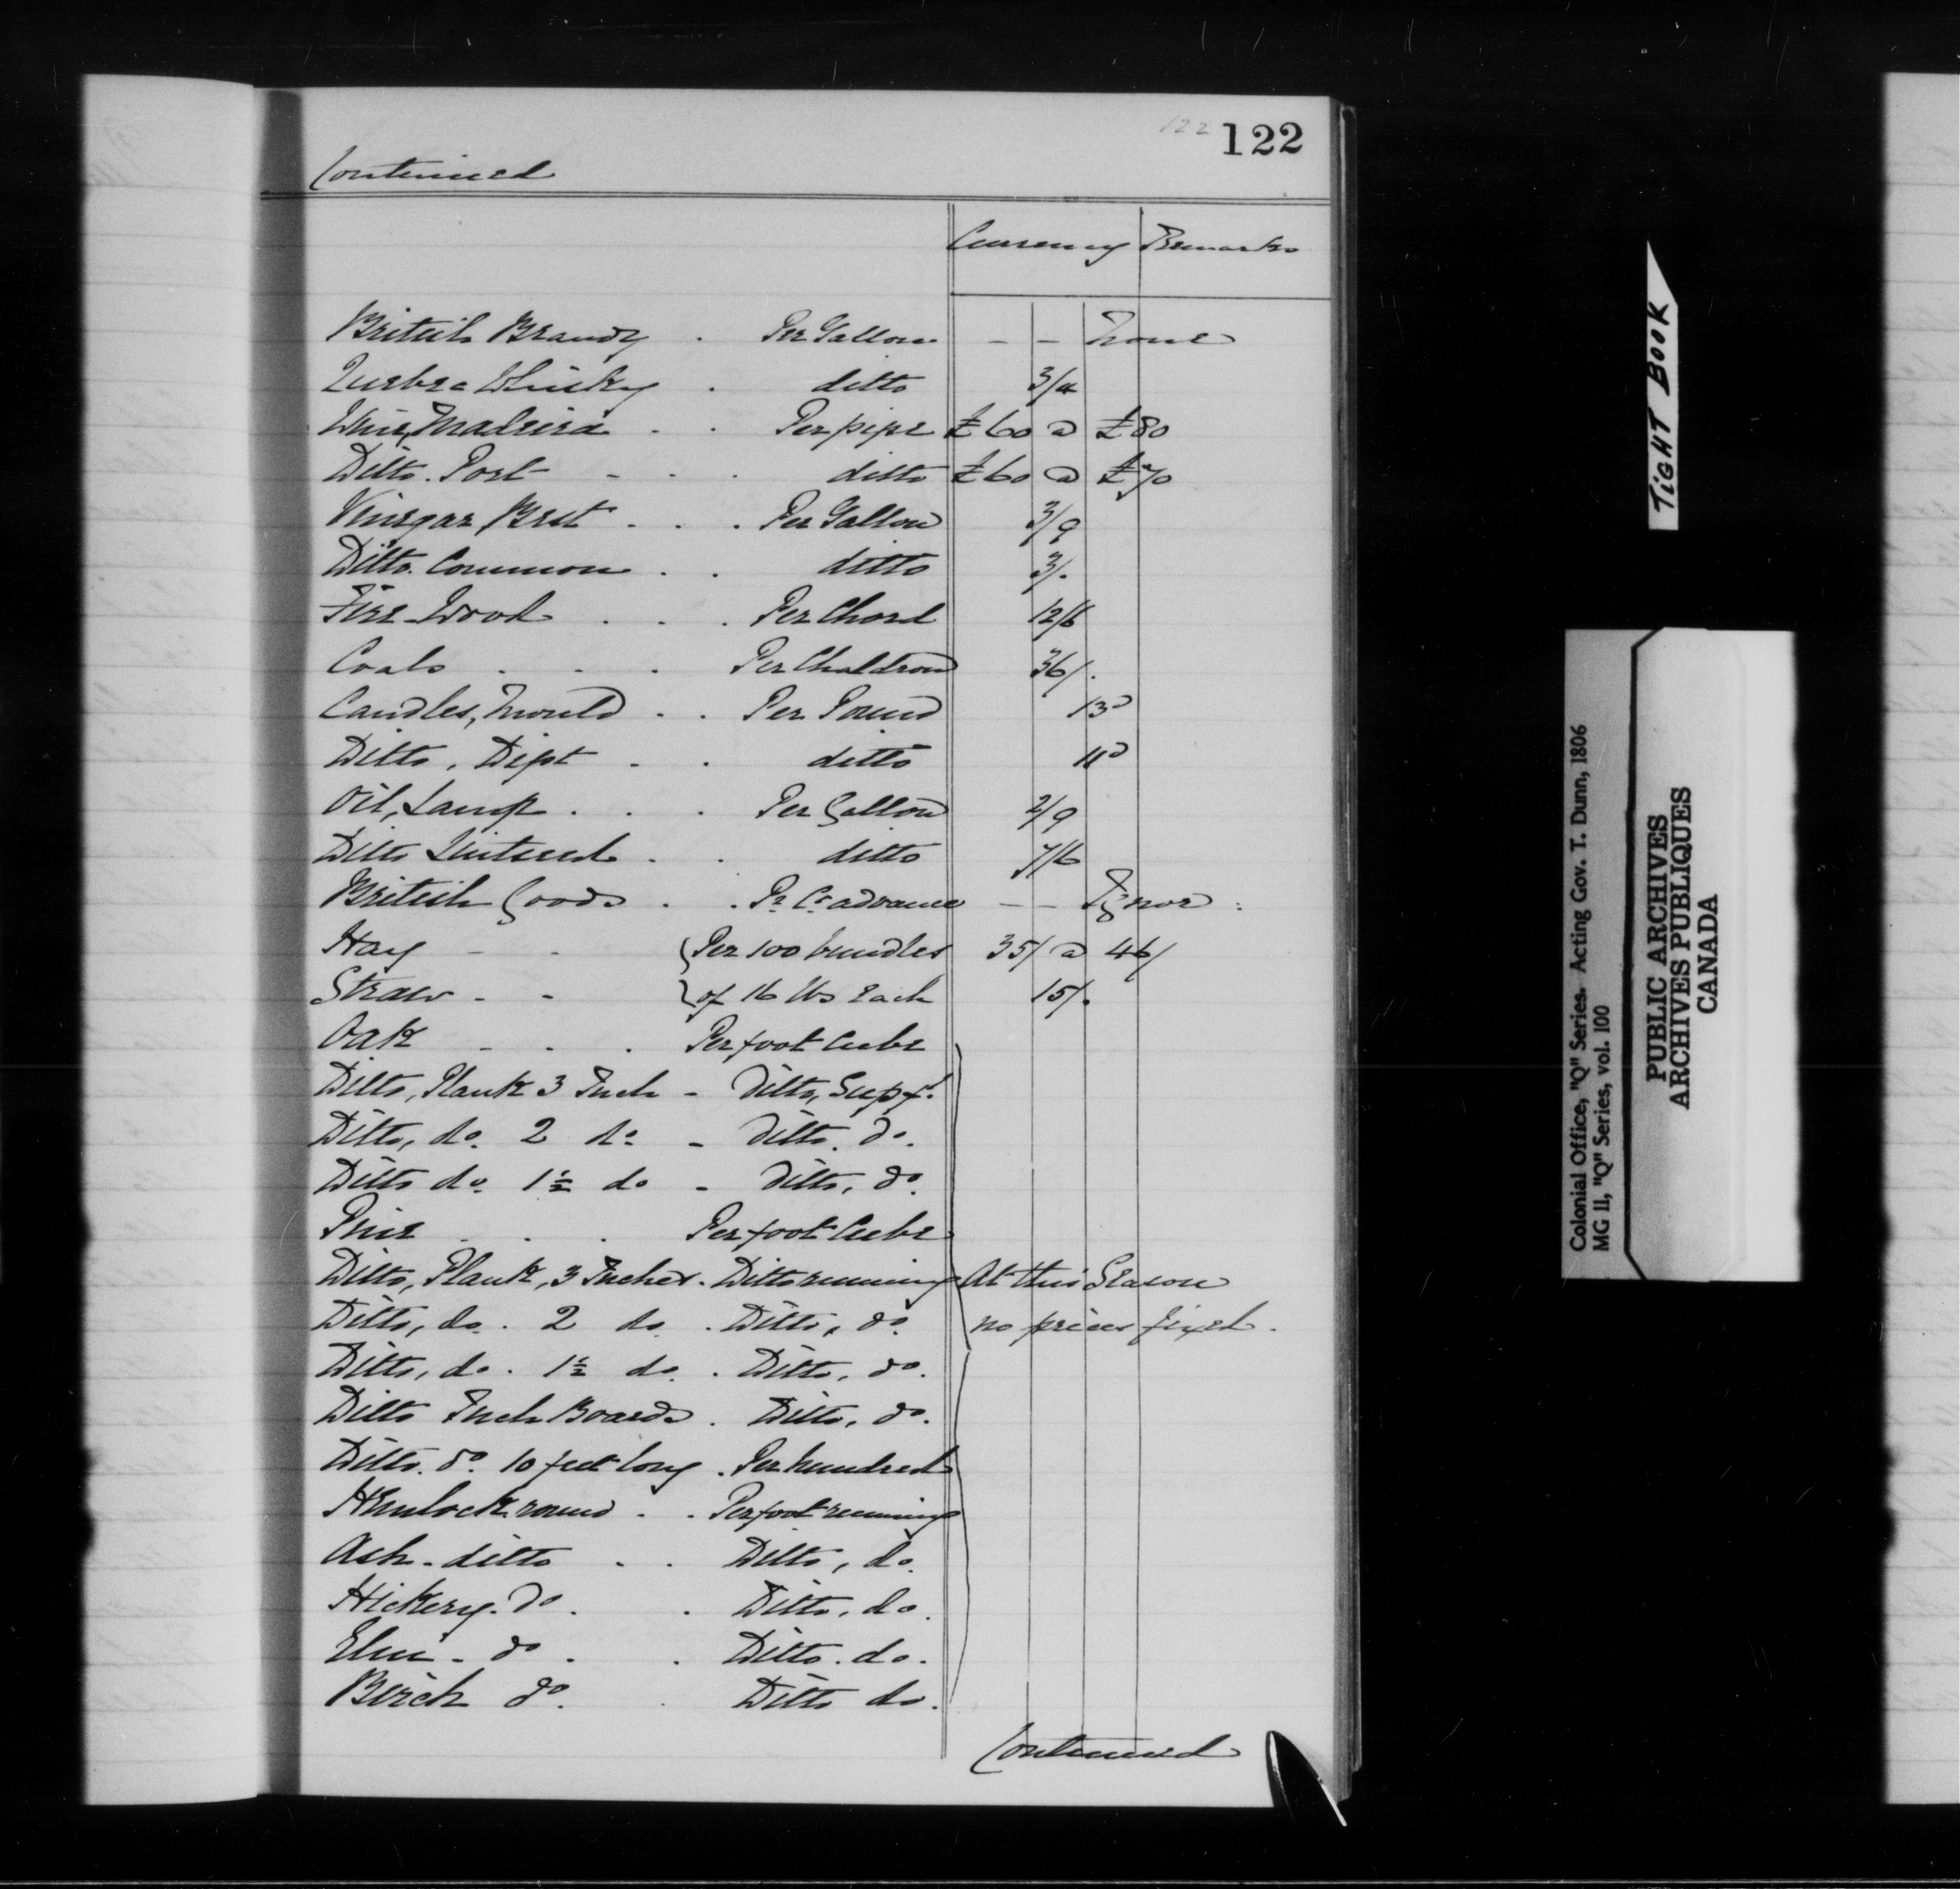 122 122
Continued
Currency Remarks
British Brandy . Per Gallon - - None
Quebec Whisky . ditto 3/4
Wine, Madeira . . Per pipe £60 a £80
Ditto. Port - - . ditto £60 a £70
Vinegar Best . . . Per Gallon 3/9
Ditto. Common . . ditto 3/.
Fire-Wood . . . Per Chord 12/6
Coals . . . Per Chaldron 36/.
Candles, Mould . . Per Pound 13d
Ditto, Dipt . . ditto 11d
Oil, Lamp . . . Per Gallon 2/9
Ditto Lintseed . . ditto 7/6
British Goods . . Pr. Ct. advance - -
Hay - - { Per 100 bundles 35/ a 46/
Straw - - { of 16 lbs Each 15/.
Oak - . . Per foot Cube
Ditto, Plank 3 Inch - Ditto, Supfl.
Ditto, do. 2 do - Ditto. do.
Ditto do. 1½ do - Ditto, do.
Pine . . . Per foot Cube
Ditto, Plank, 3 Inches . Ditto running At this Season
Ditto, do . 2 do . Ditto, do. no prices fixed.
Ditto, do . 1½ do . Ditto, do.
Ditto Inch Boards . Ditto, do.
Ditto. do. 10 feet long . Per hundred
Hemlock round . . Per foot running
Ash - ditto . . Ditto, do.
Hickery. do . . Ditto, do.
Elm - do . . Ditto. do.
Birch do. . Ditto do.
Continued
TIGHT BOOK
Colonial Office, "Q" Series. Acting Gov. T. Dunn, 1806
MG 11, "Q" Series, vol. 100
PUBLIC ARCHIVES
ARCHIVES PUBLIQUES
CANADA